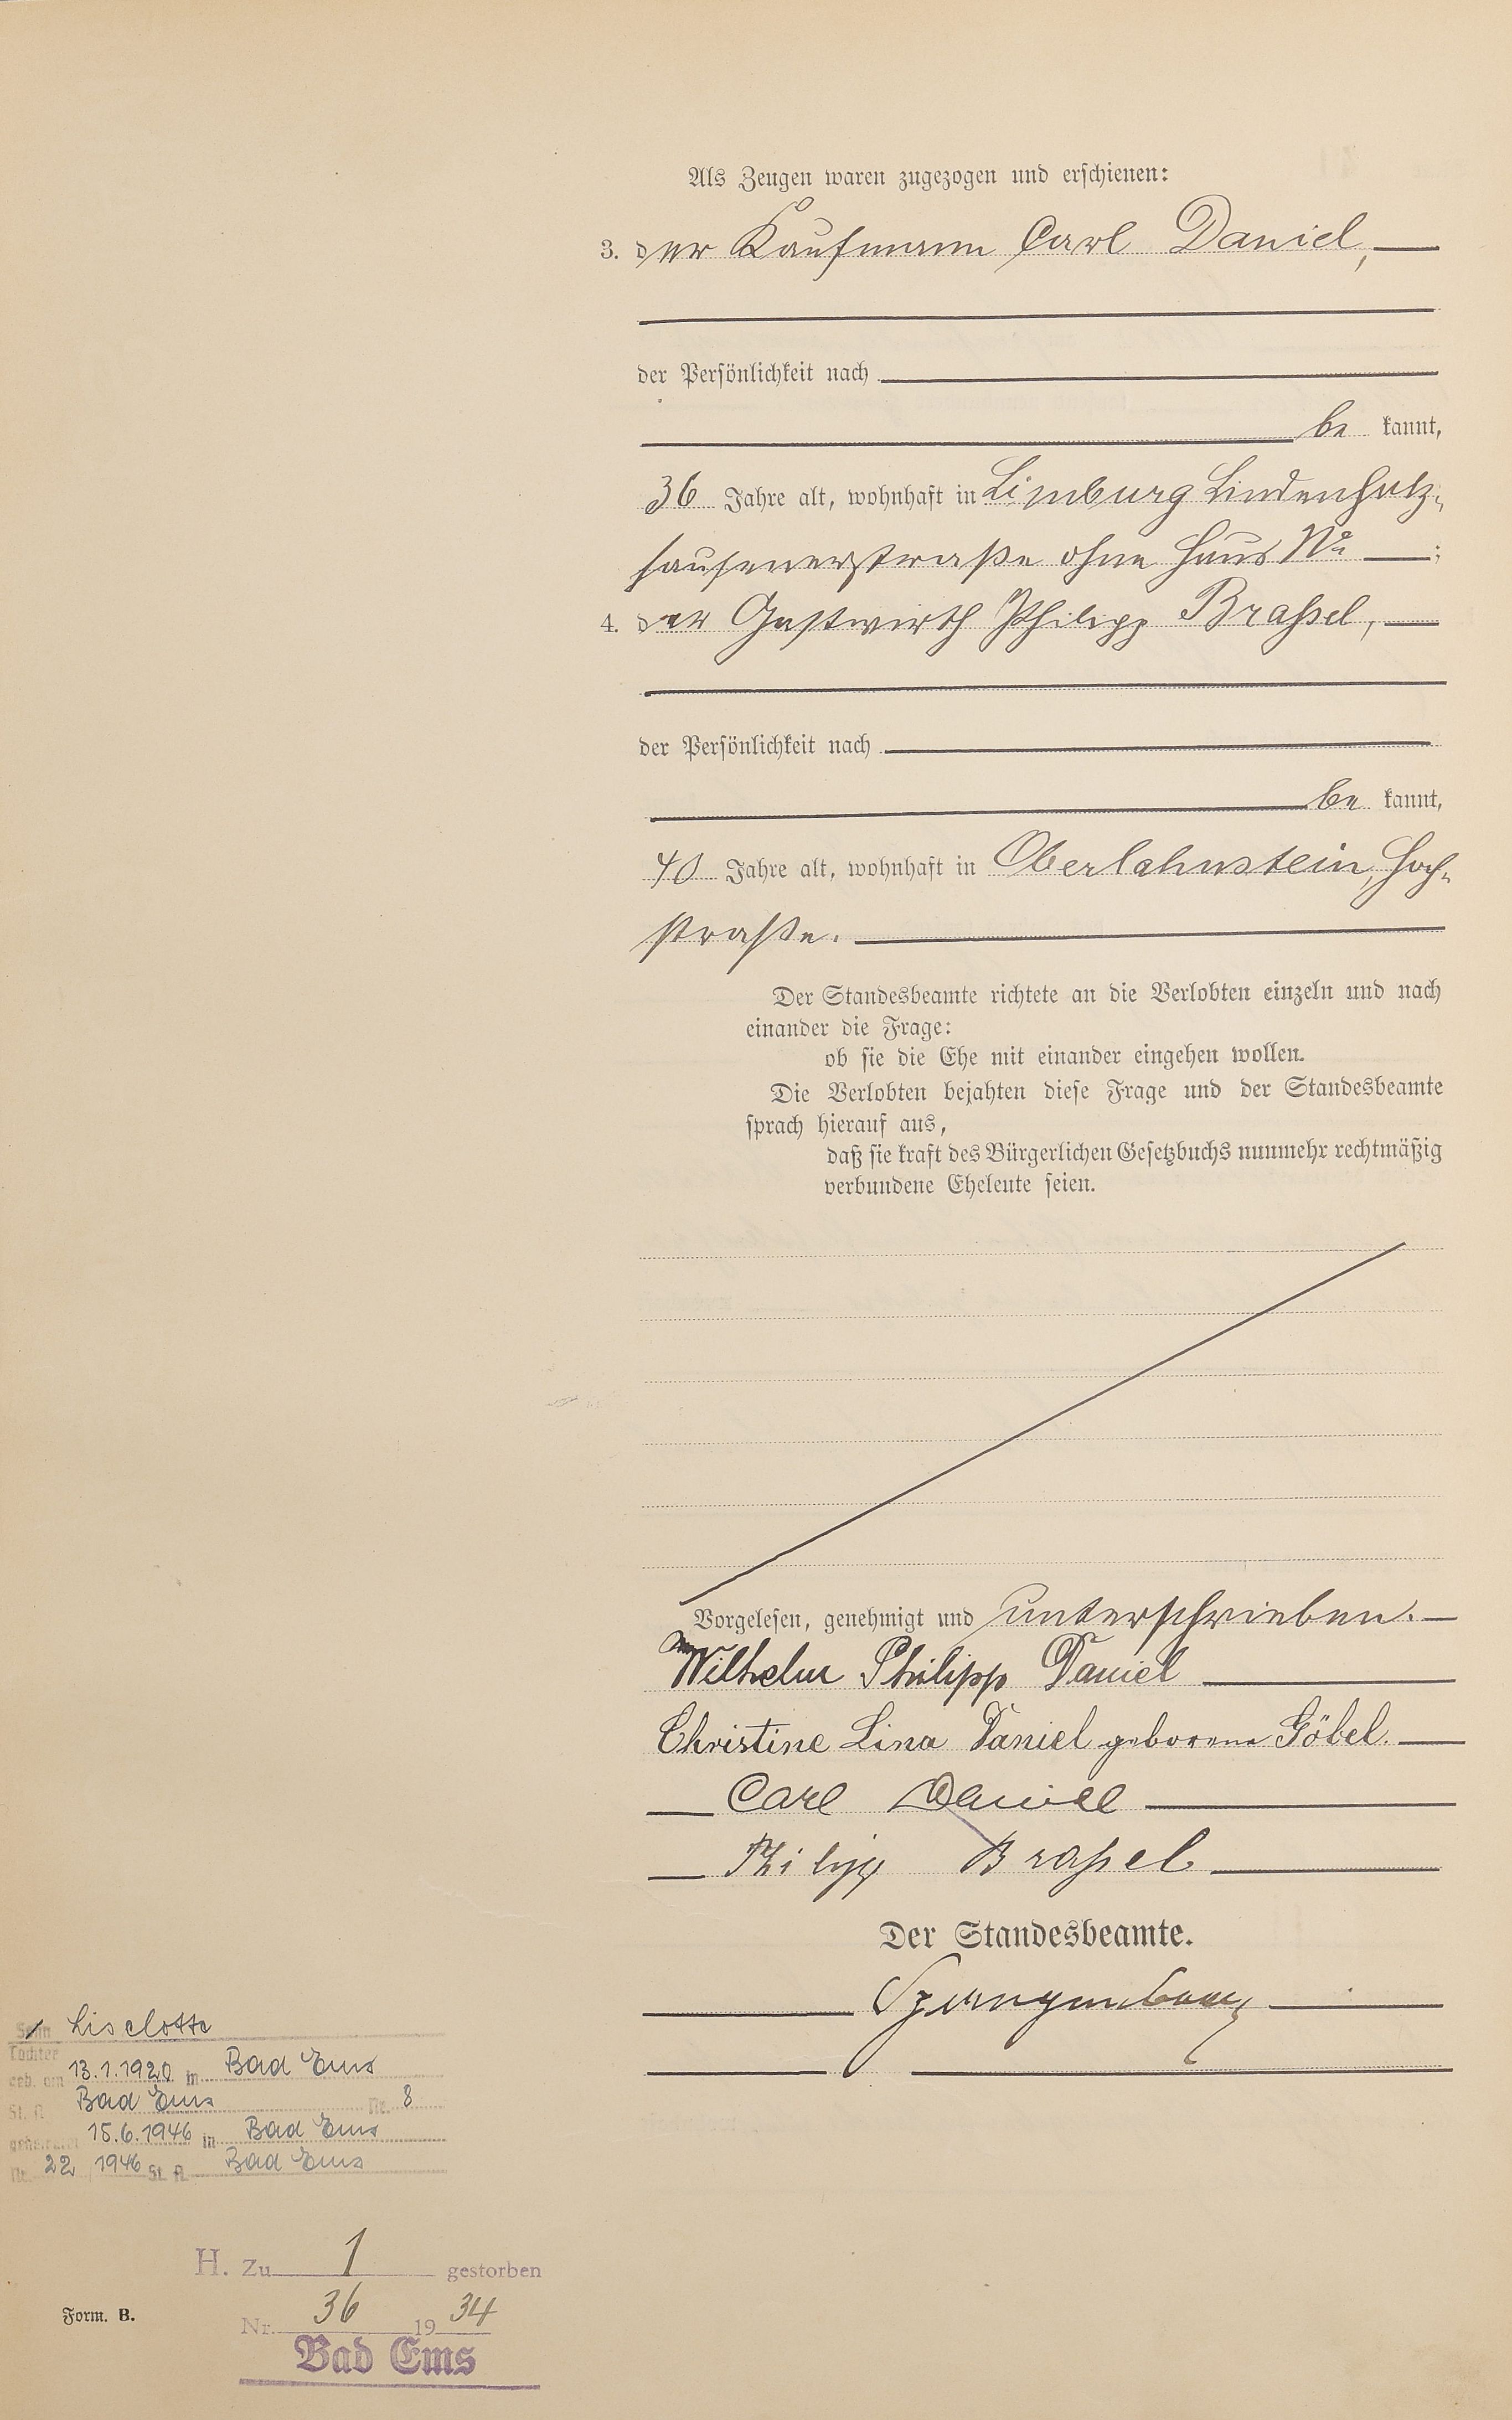 Als Zeugen waren zugezogen und erschienen:
3. der Kaufmann Carl Daniel,
der Persönlichkeit nach
be kannt,
36 Jahre alt, wohnhaft in Limburg Lindenholz-
hausenerstraße ohne Haus No ;
4. der Gastwirth Philipp Braßel,
der Persönlichkeit nach
be kannt,
40 Jahre alt, wohnhaft in Oberlahnstein, Hoch-
straße.
Der Standesbeamte richtete an die Verlobten einzeln und nach
einander die Frage:
ob sie die Ehe mit einander eingehen wollen.
Die Verlobten bejahten diese Frage und der Standesbeamte
sprach hierauf aus,
daß sie kraft des Bürgerlichen Gesetzbuchs nunmehr rechtmäßig
verbundene Eheleute seien.
Vorgelesen, genehmigt und unterschrieben.
Wilhelm Philipp Daniel
Christine Lina Daniel geborene Göbel.
Carl Daniel
Philipp Braßel
Der Standesbeamte.
Sohn Liselotte
Tochter
geb. am 13.1.1920 in Bad Ems
St. A. Bad Ems Nr. 8
geheiratet 15.6.1946 in Bad Ems
Nr. 22 1946 St. A. Bad Ems
H. Zu 1 gestorben
Nr. 36 1934
Bad Ems
Form. B.